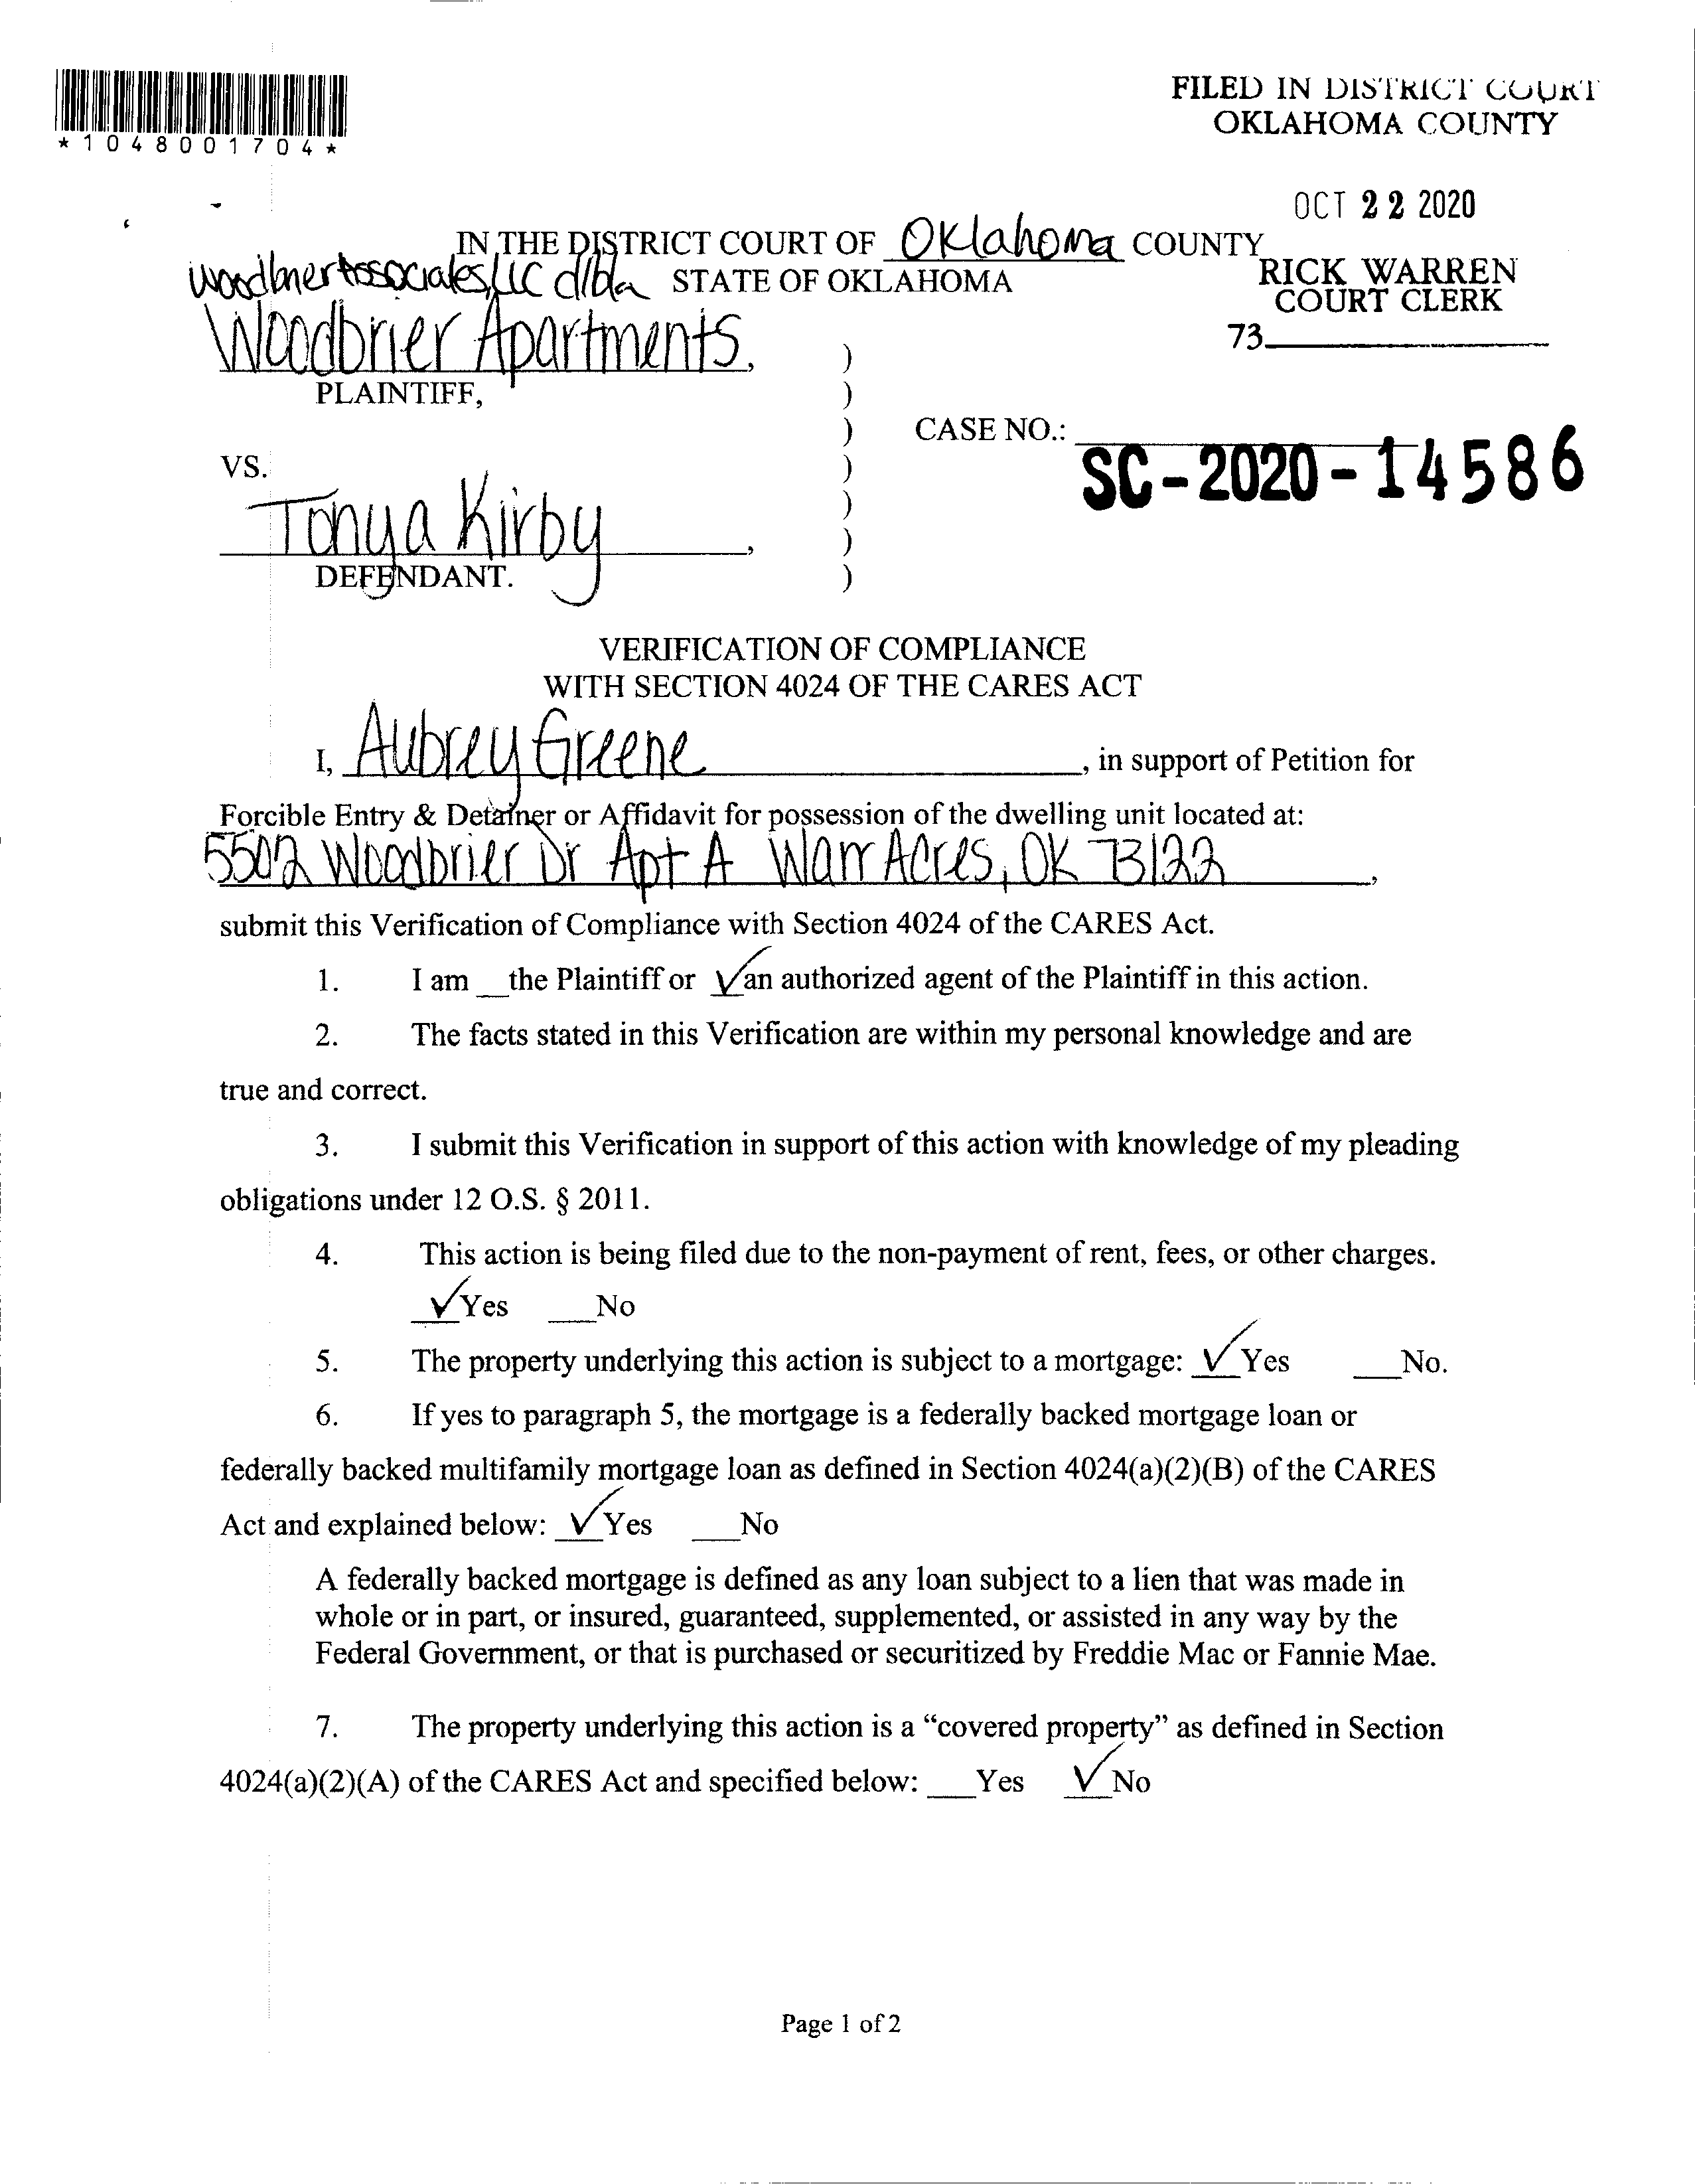 *1048001704*
FILED IN DISTRICT COURT
OKLAHOMA COUNTY
OCT 22 2020
RICK WARREN
COURT CLERK
73
IN THE DISTRICT COURT OF Oklahoma COUNTY
STATE OF OKLAHOMA
Woodbrier Associates, LLC d/b/a
Woodbrier Apartments,
PLAINTIFF,
)
)
)
)
)
)
)
CASE NO.:
SC-2020-14586
VS.
Tonya Kirby,
DEFENDANT.
VERIFICATION OF COMPLIANCE
WITH SECTION 4024 OF THE CARES ACT
I, Aubrey Greene, in support of Petition for
Forcible Entry & Detainer or Affidavit for possession of the dwelling unit located at:
5502 Woodbrier Dr Apt A Warr Acres, OK 73122,
submit this Verification of Compliance with Section 4024 of the CARES Act.
1. I am __the Plaintiff or ✓an authorized agent of the Plaintiff in this action.
2. The facts stated in this Verification are within my personal knowledge and are
true and correct.
3. I submit this Verification in support of this action with knowledge of my pleading
obligations under 12 O.S. § 2011.
4. This action is being filed due to the non-payment of rent, fees, or other charges.
✓Yes ___No
5. The property underlying this action is subject to a mortgage: ✓Yes ___No.
6. If yes to paragraph 5, the mortgage is a federally backed mortgage loan or
federally backed multifamily mortgage loan as defined in Section 4024(a)(2)(B) of the CARES
Act and explained below: ✓Yes ___No
A federally backed mortgage is defined as any loan subject to a lien that was made in
whole or in part, or insured, guaranteed, supplemented, or assisted in any way by the
Federal Government, or that is purchased or securitized by Freddie Mac or Fannie Mae.
7. The property underlying this action is a “covered property” as defined in Section
4024(a)(2)(A) of the CARES Act and specified below: ___Yes ✓No
Page 1 of 2